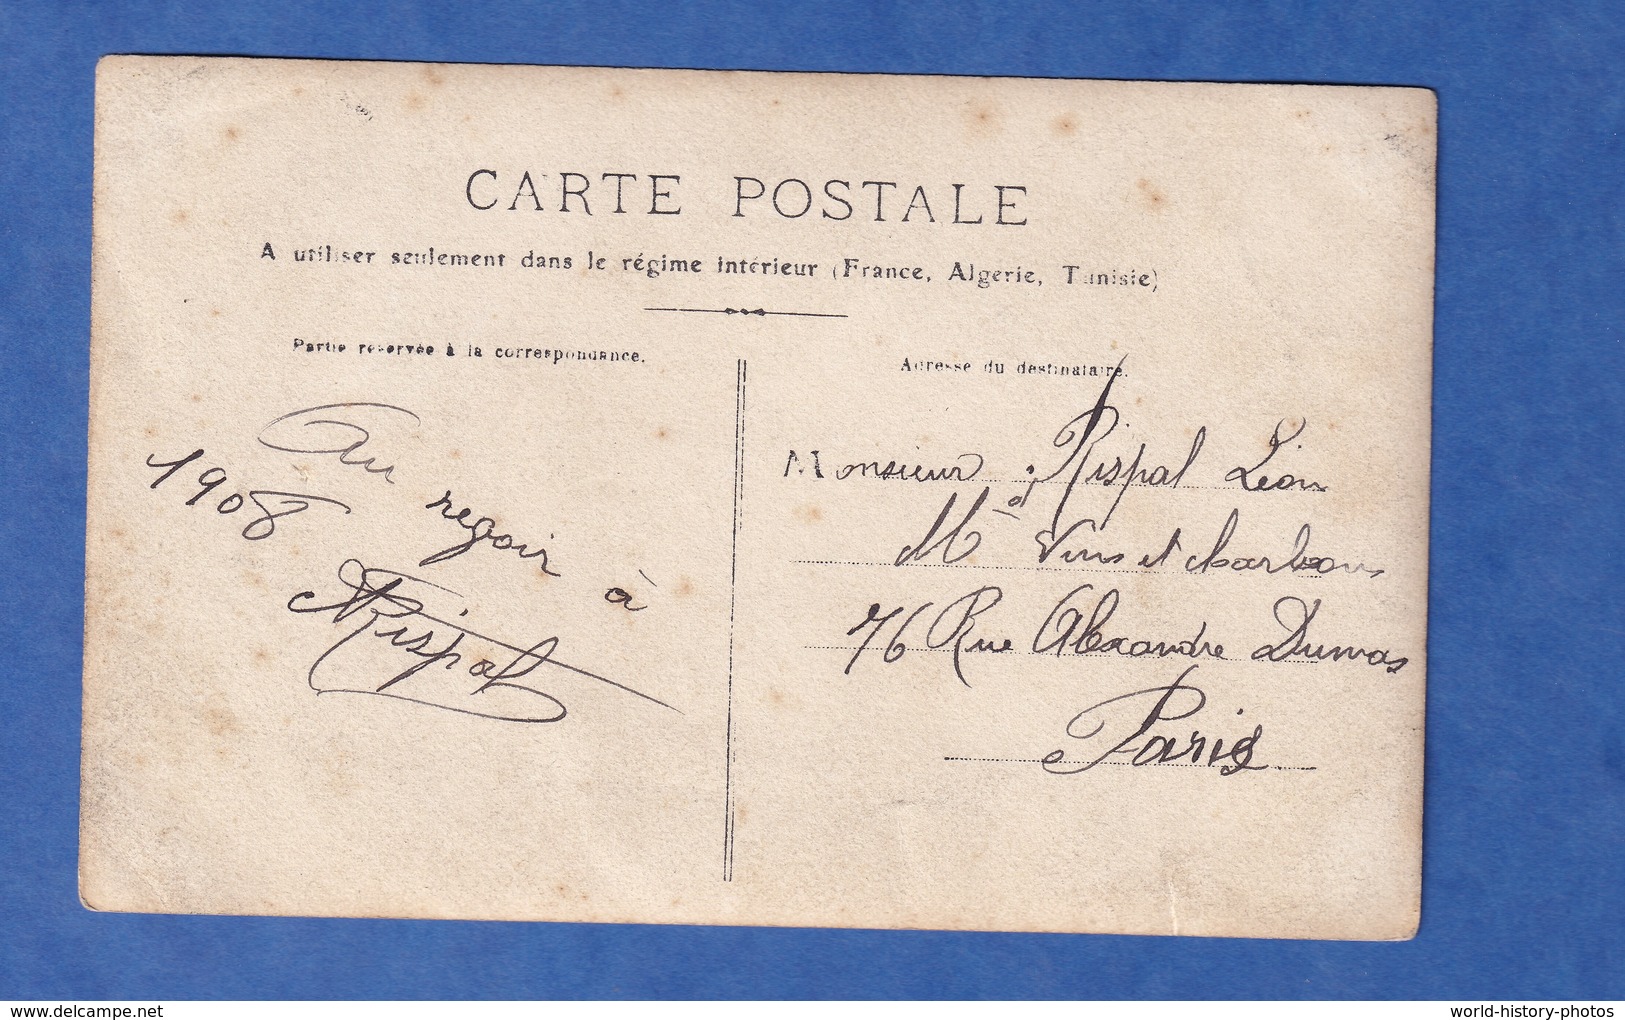 CARTE POSTALE
A utiliser seulement dans le régime intérieur (France, Algerie, Tunisie)
Partie reservée à la correspondance.
Adresse du destinataire.
Au
1908
regoir à
Rispal
Monsieur Rispal Léon
Md Vins et charbons
76 Rue Alexandre Dumas
Paris
delcampe.net
world-history-photos